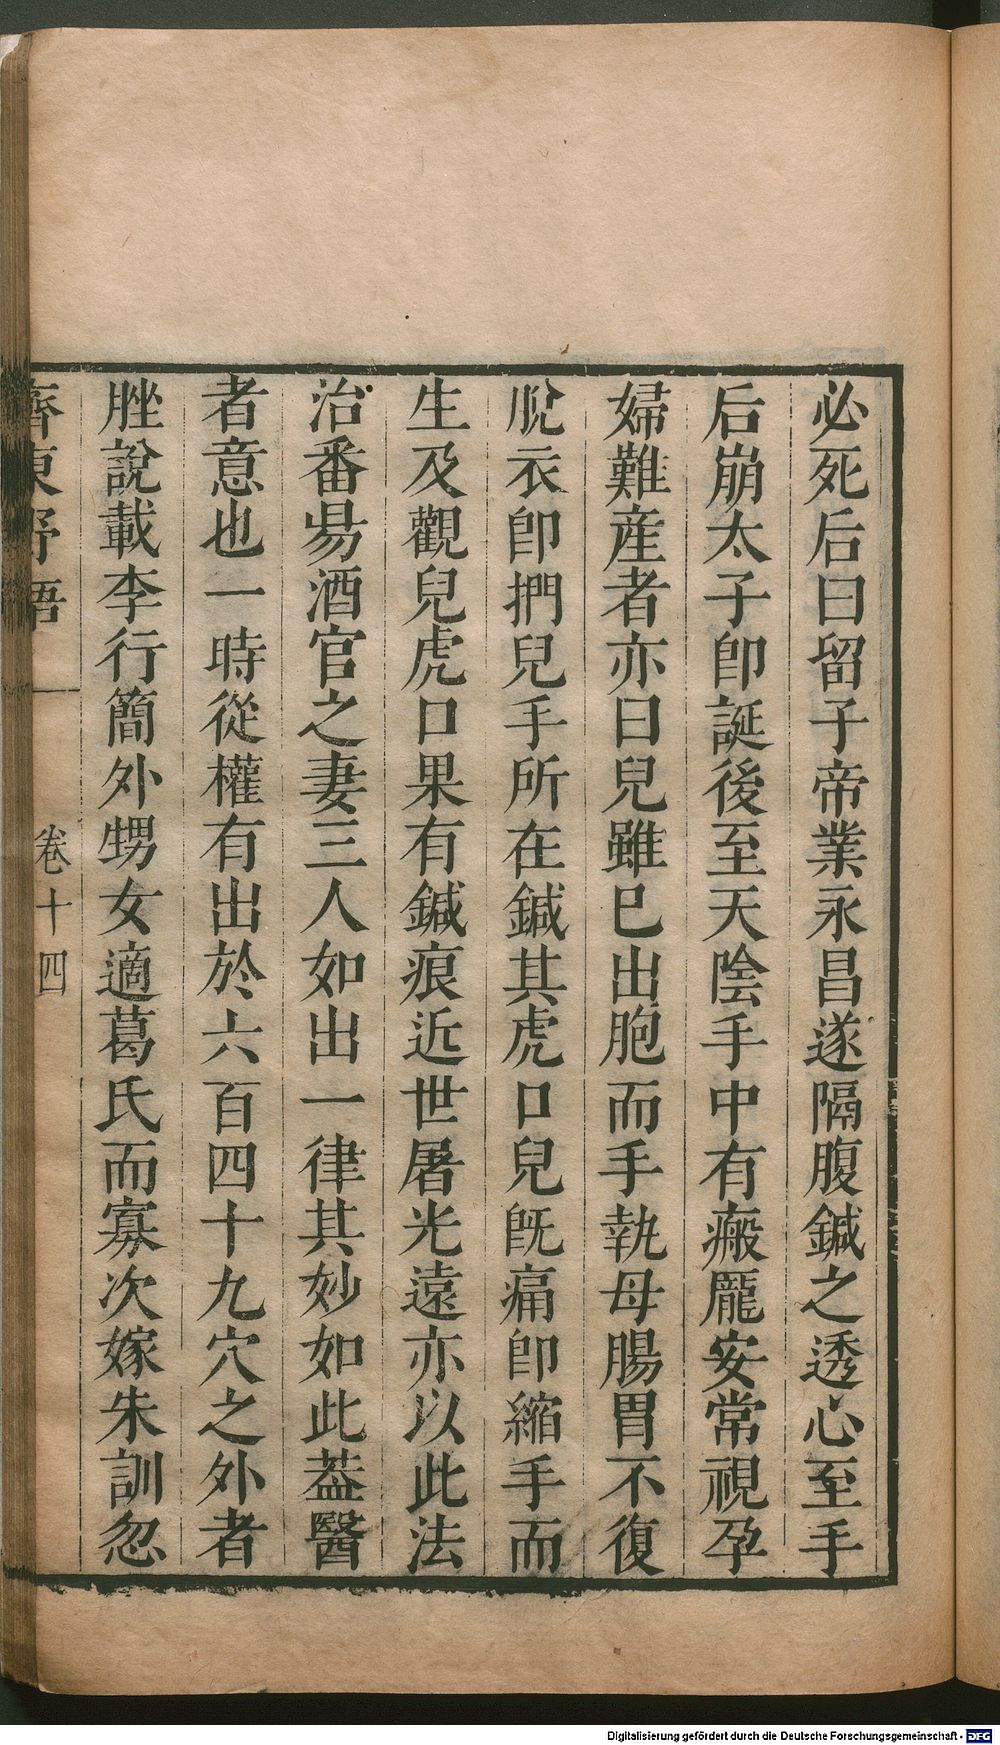 必死后曰留子帝業永昌遂隔腹鍼之透心至手
后崩太子卽誕後至天陰手中有瘢龎安常視孕
婦難産者亦曰兒雖已出胞而手執母腸胃不復
脫衣卽捫兒手所在鍼其虎口兒旣痛卽縮手而
生及觀兒虎口果有鍼痕近世屠光遠亦以此法
治番昜酒官之妻三人如出一律其妙如此葢醫
者意也一時從權有出於六百四十九穴之外者
脞說載李行簡外甥女適葛氏而寡次嫁朱訓忽
齊東野語
卷十四
Digitalisierung gefördert durch die Deutsche Forschungsgemeinschaft - DFG